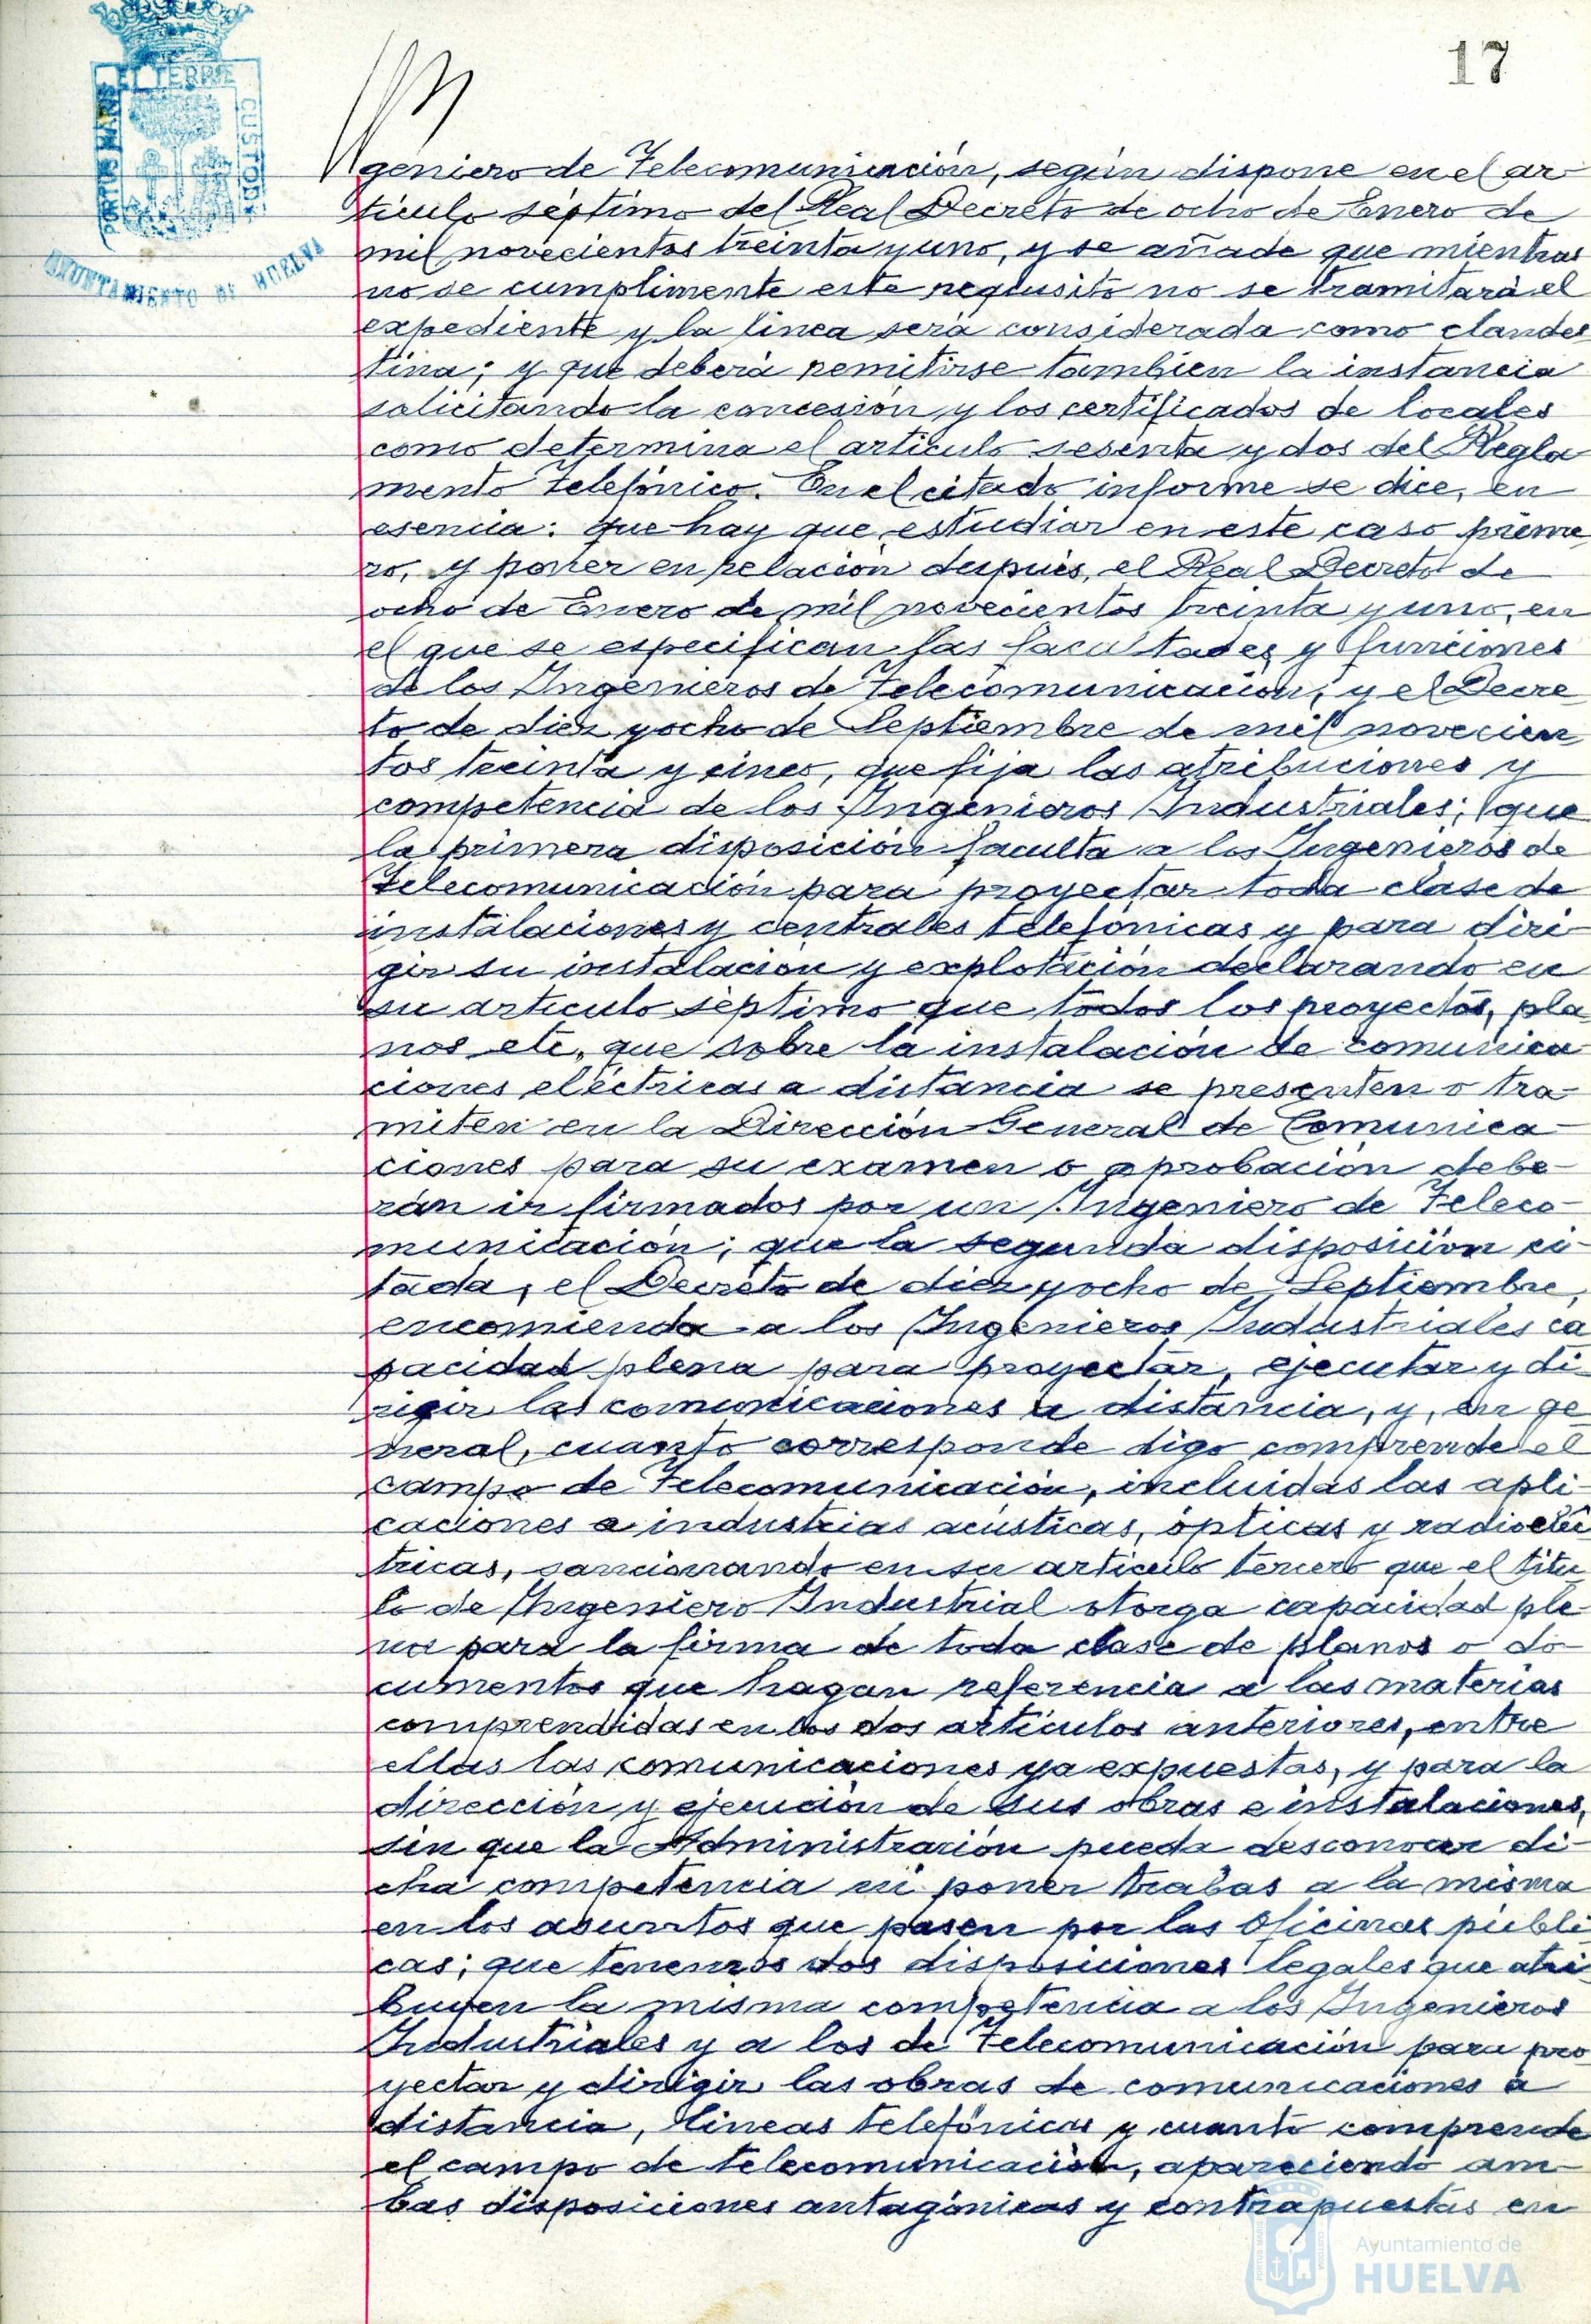 17
PORTUS MARIS
ET TERRE
CUSTODIA
AYUNTAMIENTO DE HUELVA
geniero de Telecomunicación, según dispone en el ar-
tículo séptimo del Real Decreto de ocho de Enero de
mil novecientos treinta y uno, y se añade que mientras
no se cumplimente este requisito no se tramitará el
expediente y la línea será considerada como clandes
tina; y que deberá remitirse también la instancia
solicitando la concesión y los certificados de locales
como determina el artículo sesenta y dos del Regla
mento Telefónico. En el citado informe se dice, en
esencia: que hay que estudiar en este caso prime
ro, y poner en relación después, el Real Decreto de
ocho de Enero de mil novecientos treinta y uno, en
el que se especifican las facultades y funciones
de los Ingenieros de Telecomunicación, y el Decre
to de diez y ocho de Septiembre de mil novecien
tos treinta y cinco, que fija las atribuciones y
competencia de los Ingenieros Industriales; que
la primera disposición faculta a los Ingenieros de
Telecomunicación para proyectar toda clase de
instalaciones y centrales telefónicas y para diri-
gir su instalación y explotación declarando en
su artículo séptimo que todos los proyectos, pla
nos etc, que sobre la instalación de comunica
ciones eléctricas a distancia se presenten o tra-
miten en la Dirección General de Comunica-
ciones para su examen o aprobación debe-
rán ir firmados por un Ingeniero de Teleco-
municación; que la segunda disposición ci-
tada, el Decreto de diez y ocho de Septiembre,
encomienda a los Ingenieros Industriales ca
pacidad plena para proyectar, ejecutar y di-
rigir las comunicaciones a distancia, y, en ge
neral, cuanto corresponde digo comprende el
campo de Telecomunicación, incluidas las apli-
caciones a industrias acústicas, ópticas y radioeléc
tricas, sancionando en su artículo tercero que el títu
lo de Ingeniero Industrial otorga capacidad ple-
na para la firma de toda clase de planos o do-
cumentos que hagan referencia a las materias
comprendidas en los dos artículos anteriores, entre
ellas las comunicaciones ya expuestas, y para la
dirección y ejecución de sus obras e instalaciones,
sin que la Administración pueda desconocer di-
cha competencia ni poner trabas a la misma
en los asuntos que pasen por las Oficinas públi
cas; que tenemos dos disposiciones legales que atri
buyen la misma competencia a los Ingenieros
Industriales y a los de Telecomunicación para pro
yectar y dirigir las obras de comunicaciones a
distancia, líneas telefónicas y cuanto comprende
el campo de telecomunicación, apareciendo am-
bas disposiciones antagónicas y contrapuestas en
Ayuntamiento de
HUELVA